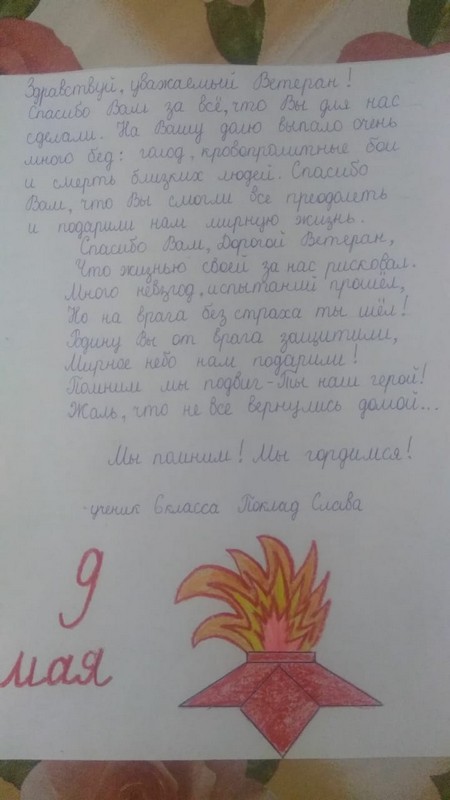 Здравствуй, уважаемый Ветеран!
Спасибо Вам за всё, что Вы для нас
сделали. На Вашу долю выпало очень
много бед: голод, кровопролитные бои
и смерть близких людей. Спасибо
Вам, что Вы смогли все преодолеть
и подарили нам мирную жизнь.
Спасибо Вам, Дорогой Ветеран,
Что жизнью своей за нас рисковал.
Много невзгод, испытаний прошёл,
Но на врага без страха ты шёл!
Родину Вы от врага защитили,
Мирное небо нам подарили!
Помним мы подвиг - Ты наш герой!
Жаль, что не все вернулись домой...
Мы помним! Мы гордимся!
ученик 6 класса Поклад Слава
9
мая